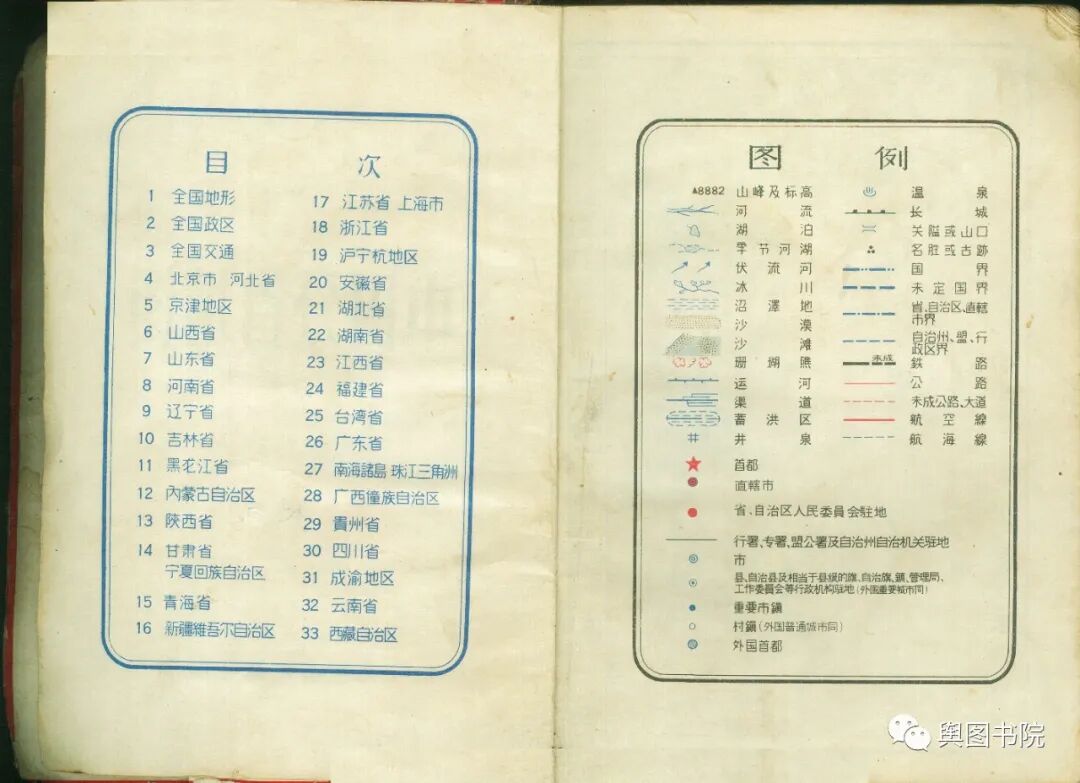 目 次
1 全国地形
2 全国政区
3 全国交通
4 北京市 河北省
5 京津地区
6 山西省
7 山东省
8 河南省
9 辽宁省
10 吉林省
11 黑龙江省
12 內蒙古自治区
13 陝西省
14 甘肃省
宁夏回族自治区
15 青海省
16 新疆維吾尔自治区
17 江苏省 上海市
18 浙江省
19 沪宁杭地区
20 安徽省
21 湖北省
22 湖南省
23 江西省
24 福建省
25 台湾省
26 广东省
27 南海諸島 珠江三角洲
28 广西僮族自治区
29 貴州省
30 四川省
31 成渝地区
32 云南省
33 西藏自治区
图 例
▲8882 山峰及标高
河流
湖泊
季节河湖
伏流河
冰川
沼澤地
沙漠
沙滩
珊瑚礁
运河
渠道
蓄洪区
井泉
温泉
长城
关隘或山口
名胜或古跡
国界
未定国界
省、自治区、直轄
市界
自治州、盟、行
政区界
未成 鉄路
公路
未成公路、大道
航空線
航海線
首都
直轄市
省、自治区人民委員会驻地
行署、专署、盟公署及自治州自治机关驻地
市
县、自治县及相当于县級的旗、自治旗、鎮、管理局、
工作委員会等行政机构驻地(外国重要城市同)
重要市鎮
村鎮(外国普通城市同)
外国首都
舆图书院